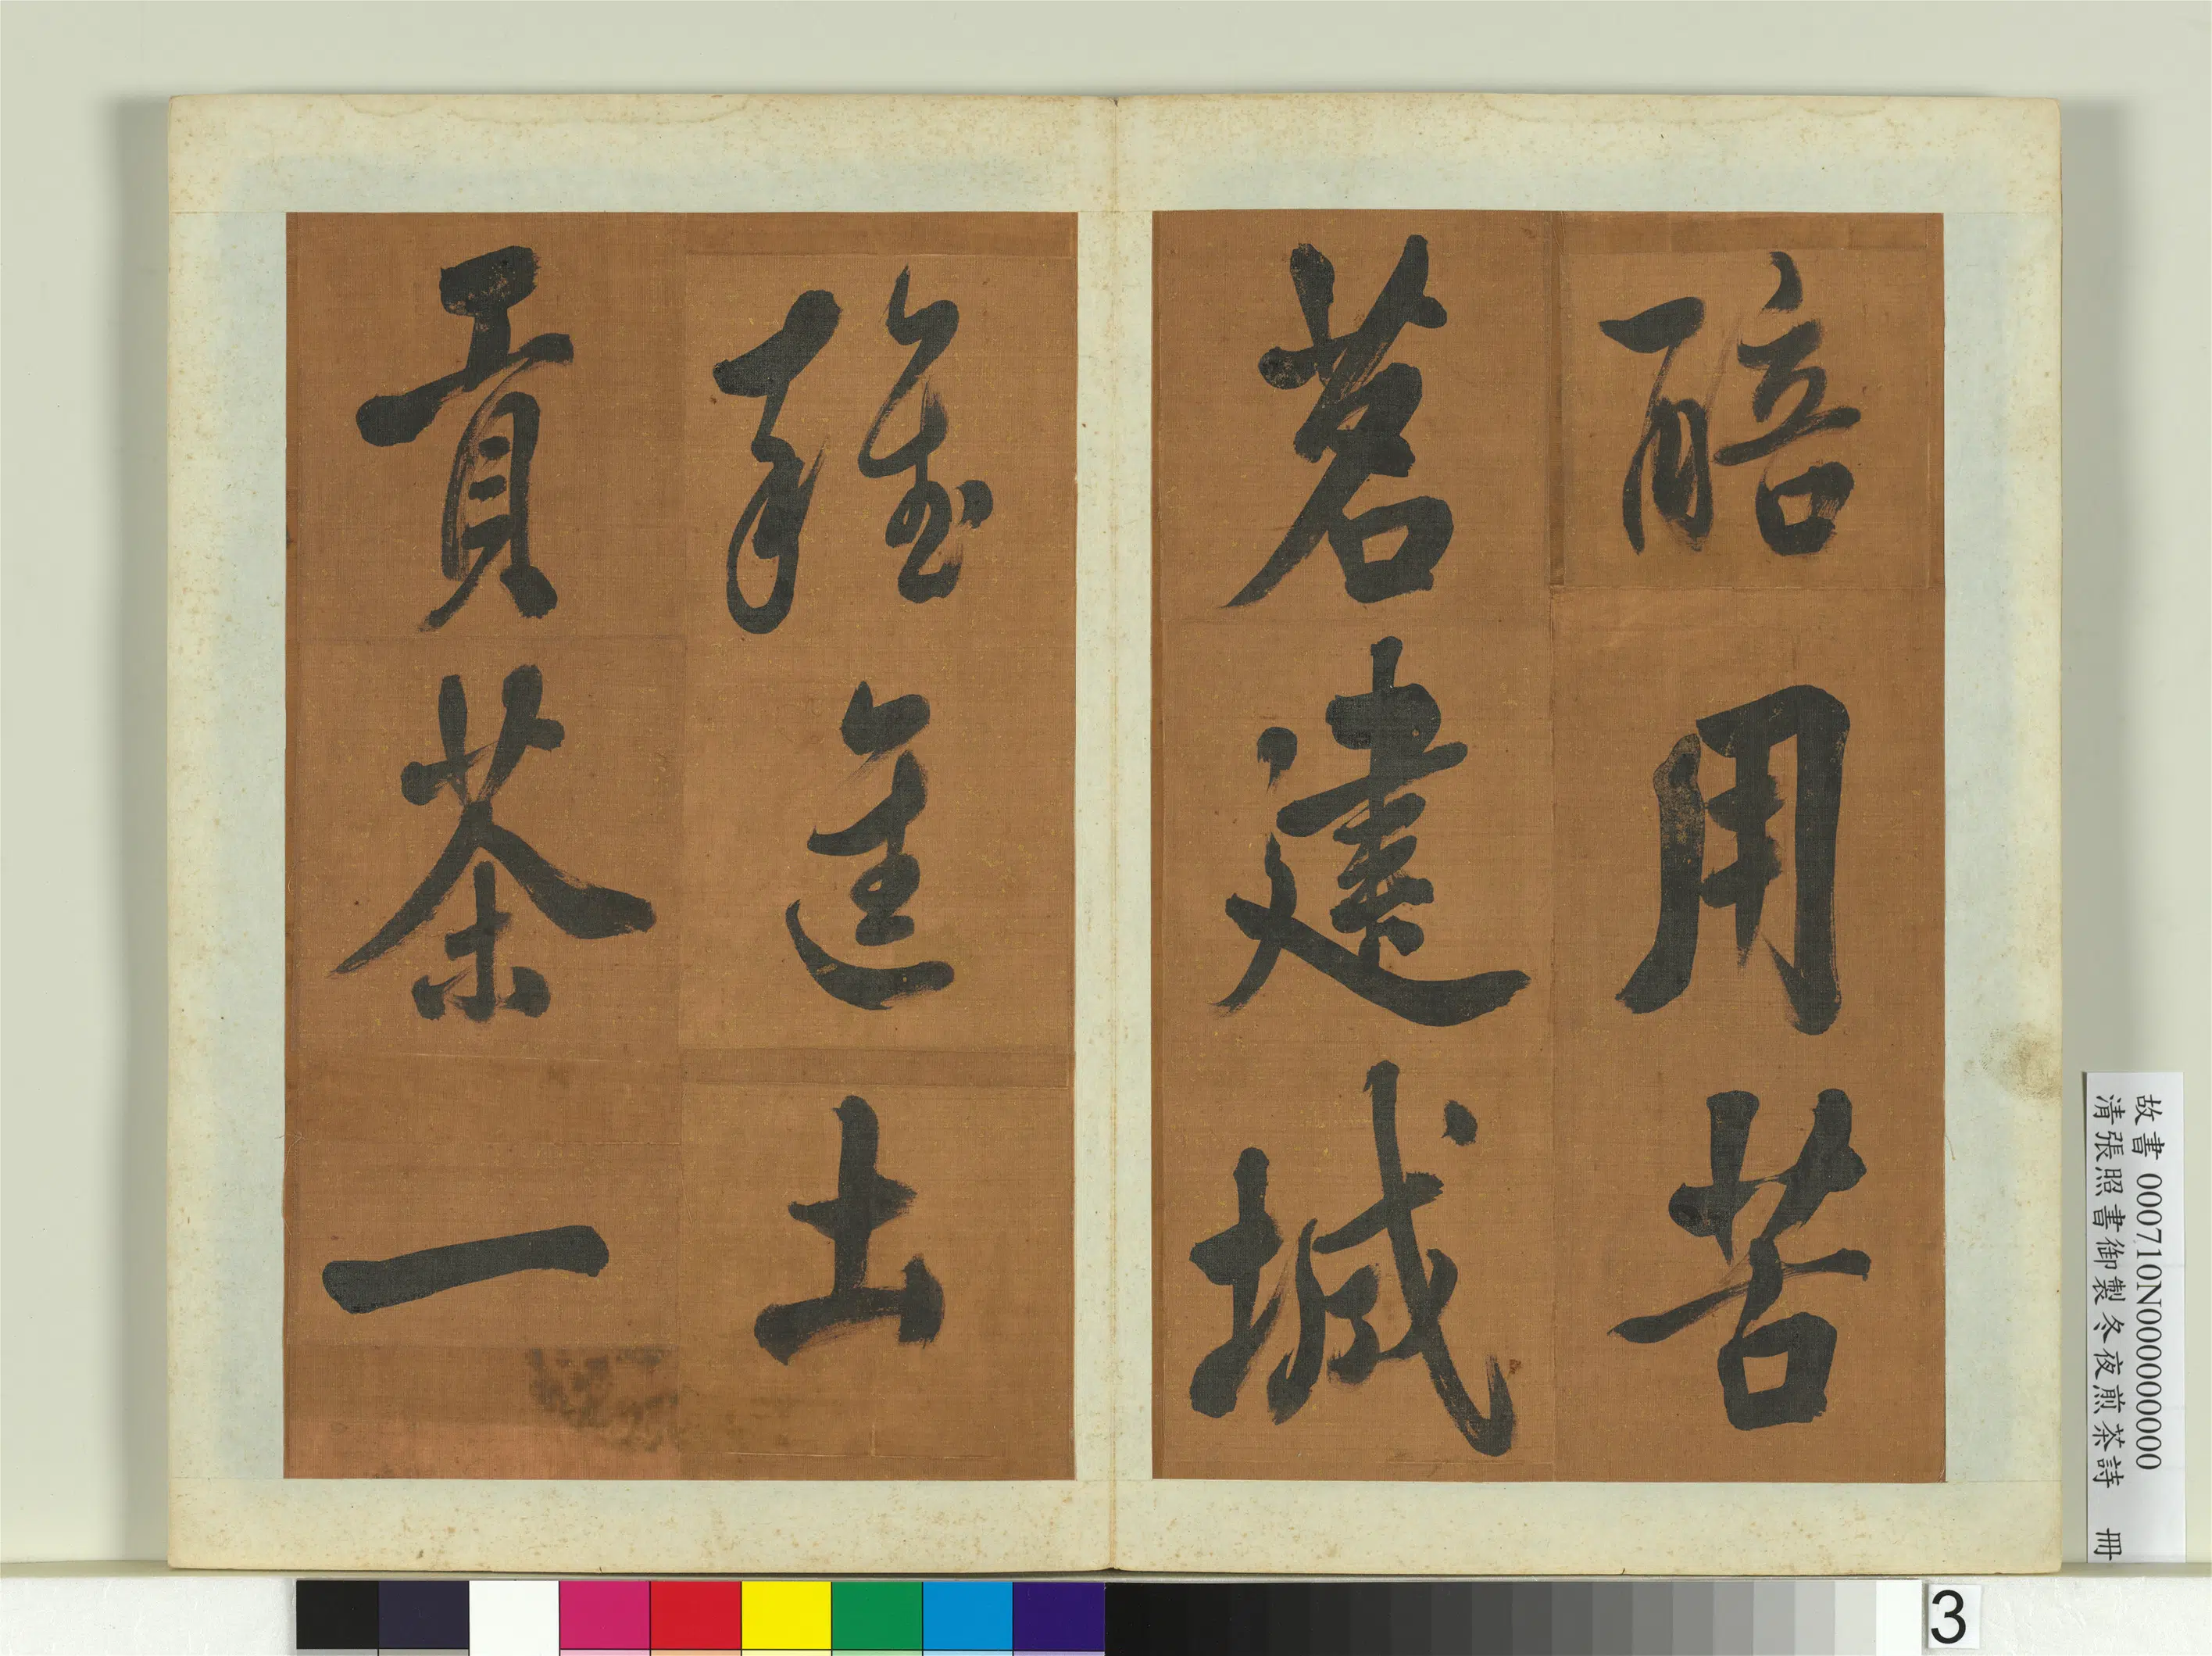 醅用苦
茗建城
雜進土
貢茶一
故書 000710N000000000
清張照書御製冬夜煎茶詩 冊
3